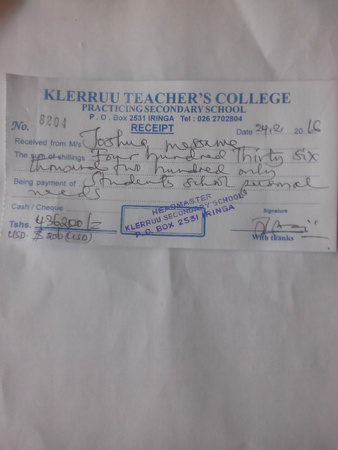 KLERRUU TEACHER'S COLLEGE
PRACTICING SECONDARY SCHOOL
P.O. Box 2531 IRINGA Tel: 026 2702804
No. 8204 RECEIPT Date 24.2. 2016
Received from M/s Joshua
The sum of shillings Four hundred Thirty six
thousand two hundred only
Being payment of Student's school personal
needs
Cash / Cheque
HEADMASTER
KLERRUU SECONDARY SCHOOL
P.O. BOX 2531 IRINGA
Signature
Tshs. 436200/=
With thanks
USD $ 200 (USD)